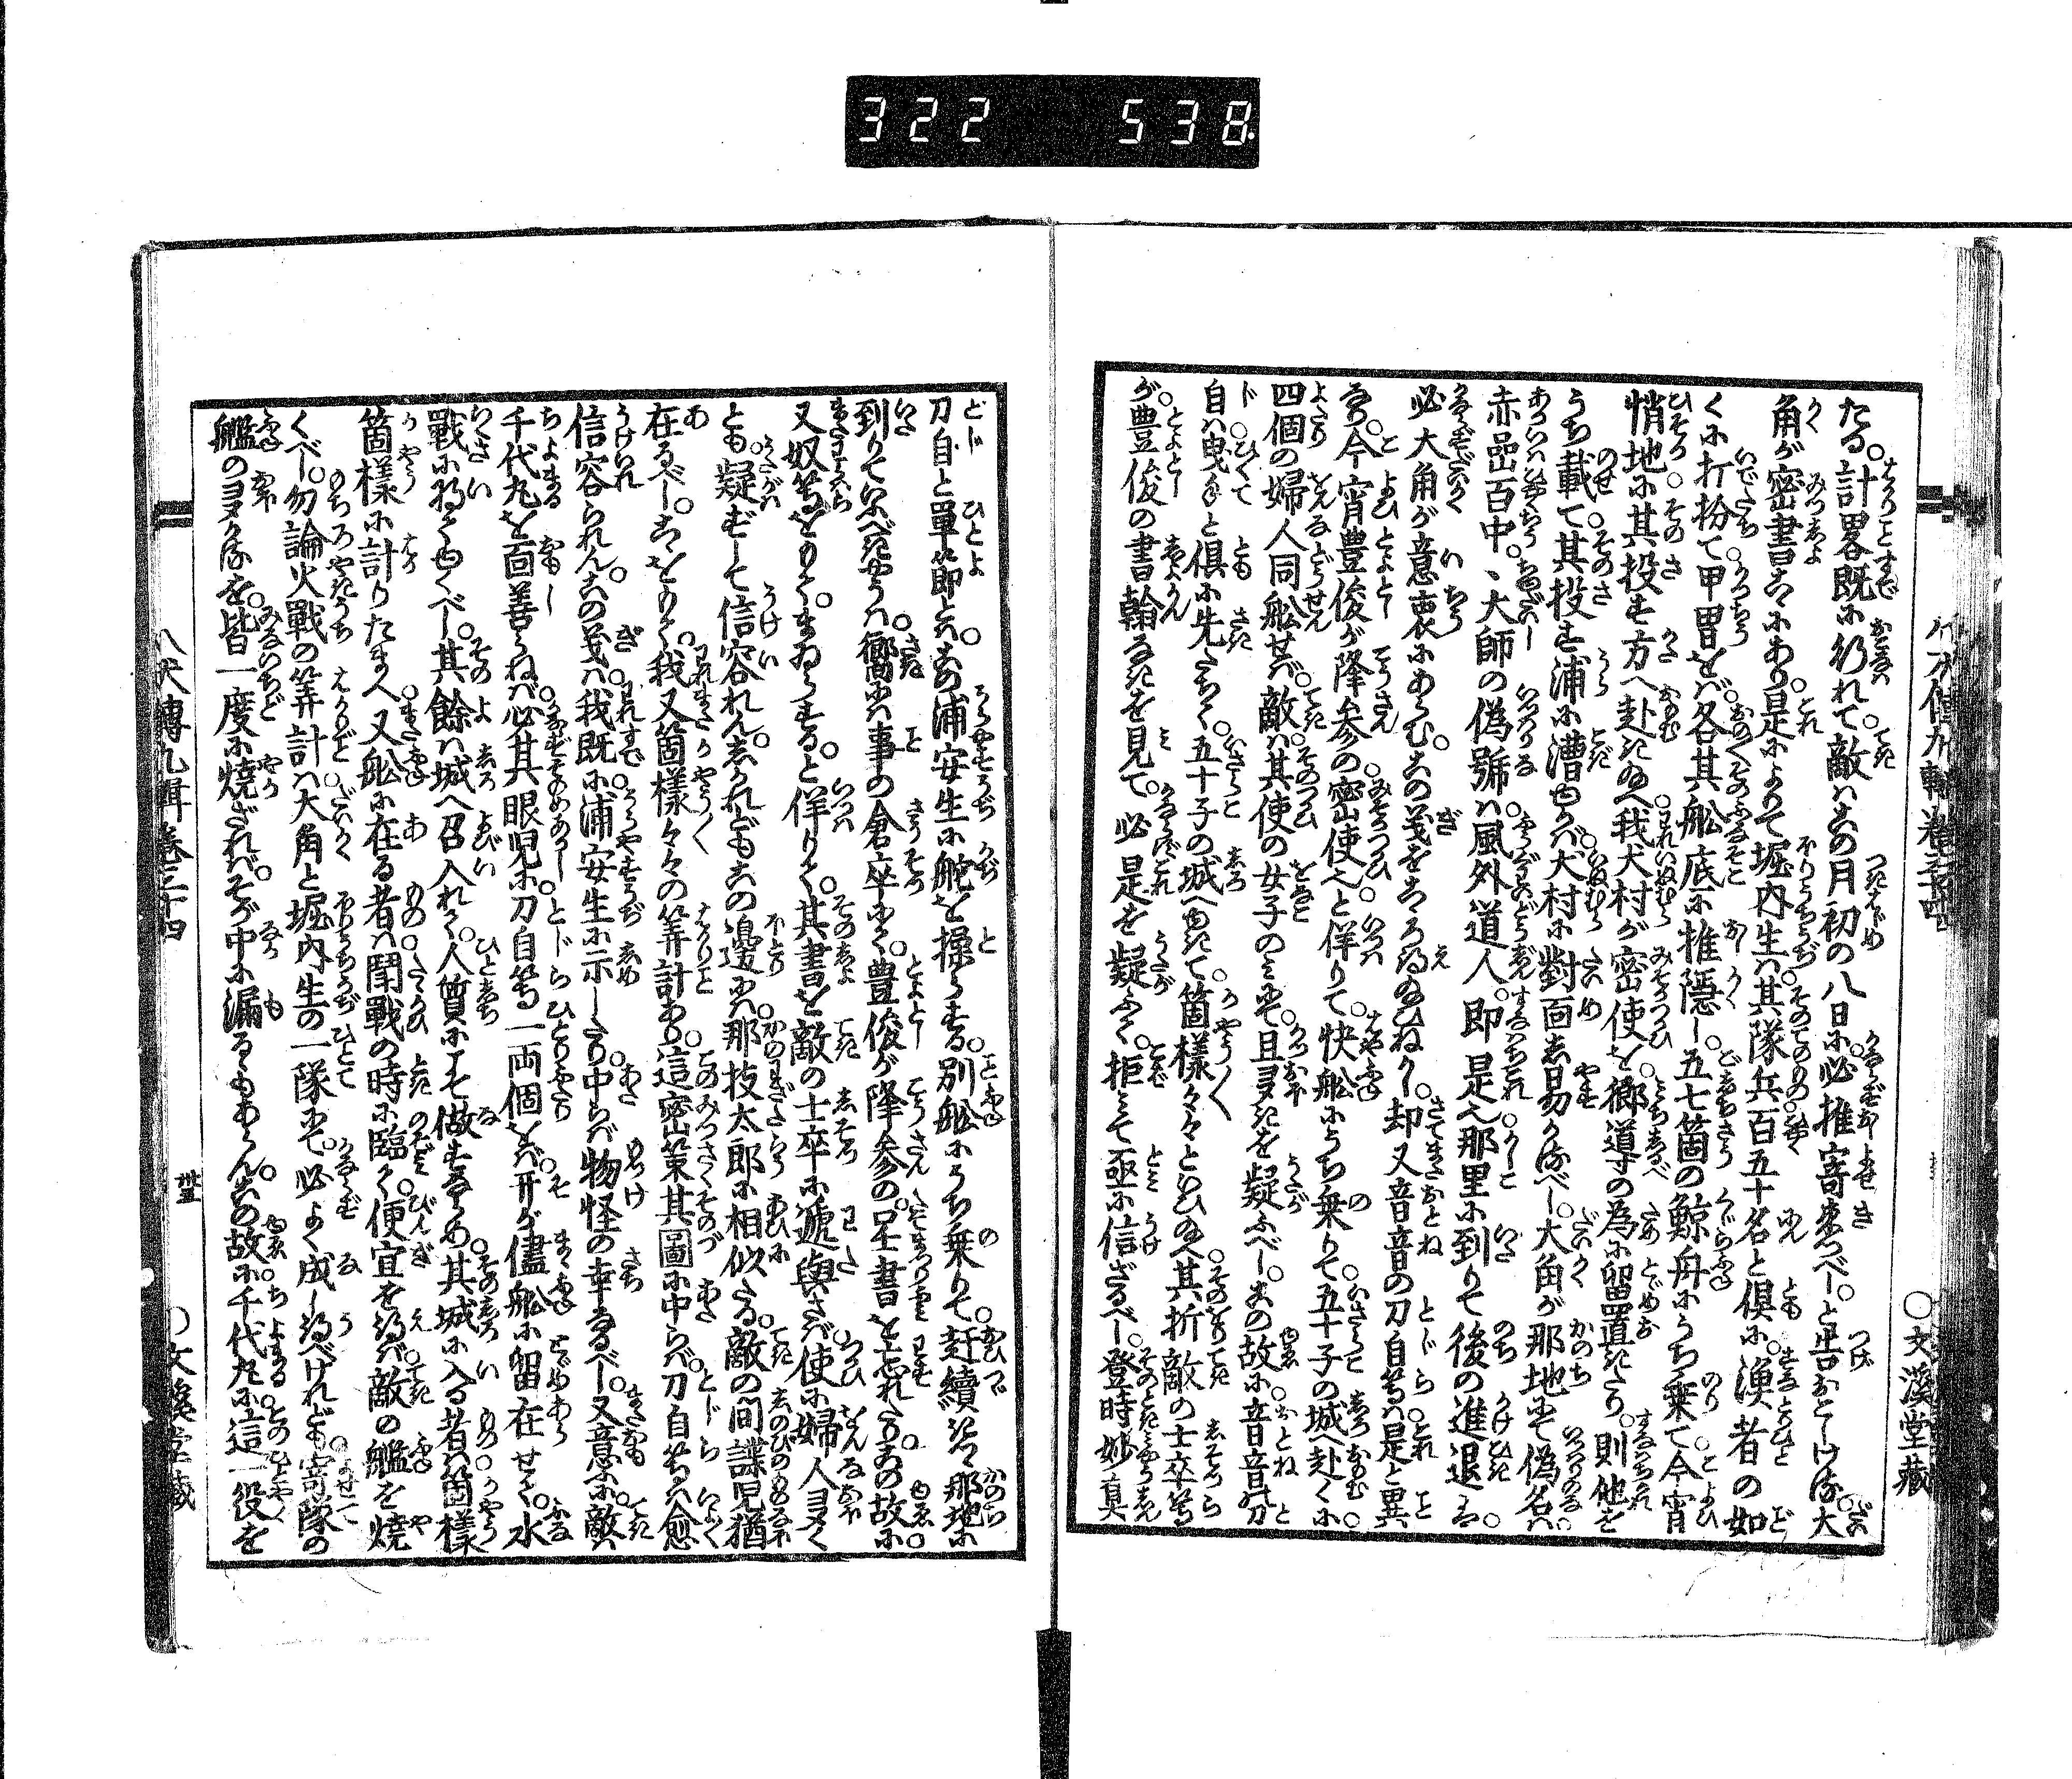 322 538
八犬傳九輯卷三十四
○文溪堂藏
たる。計畧既に行れて敵ハ此の月初の八日に必推寄來つべし。と告おこしける。大
角が密書こゝにあり。是によりて堀内生ハ其隊兵百五十名と倶に漁者の如
くに打扮て甲冑をバ各其舩底に推隱し五七箇の鯨舟にうち乗て今宵
悄地に其投す方へ赴きね我犬村が密使を郷導の為に留置きたり。則他を
うち載て其投す浦に漕ゆかバ犬村に對面易かるべし。大角が那地にて偽名ハ
赤嵒百中、大師の偽號ハ風外道人。即是也那里に到りて後の進退ハ
必大角が意衷にあらむ。此の義をこゝろ得ねかし。却又音音の刀自等ハ是と異
なり。今宵豊俊が降参の密使也と佯りて。快舩にうち乗りて五十子の城へ赴くに
四個の婦人同舩せバ敵ハ其使の女子のミにて且ヨヌキを疑ふべし。此の故に音音刀
自ハ曳手と倶に先たちて。五十子の城へゆきて。箇樣々々といひね其折敵の士卒等
が豊俊の書翰なきを見て。必是を疑ふて。拒ミて亟に信ざるべし。登時妙真
刀自と單節とハ。此の浦安生に舵を操らする。別舩にうち乗りて。赶續きて那地に
到りていふべきやうハ。嚮にハ事の倉卒にて。豊俊が降参の呈書を忘れたり此の故に
又奴等をもてまゐらする。と佯りて。其書を敵の士卒に遞與さバ使に婦人ヨヌく
とも。疑ずして信容れん。しかれども此の邊にハ那技太郎に相似たる。敵の間諜児猶
在るべし。こゝをもて。我又箇樣々々の筭計あり。這密策其圖に中らバ刀自等ハ愈
信容られん。此の義ハ。我既に浦安生に示したり。中らバ物怪の幸なるべし。又意ふに敵ハ
千代丸を面善らねバ必其眼児に刀自等一両個をバ。其が儘舩に留在せて。水
戰に将てゆくべし。其餘ハ城へ召入れて。人質にす做すならめ其城に入る者ハ箇樣
箇樣に計りたまへ又舩に在る者ハ鬪戰の時に臨て。便宜を得バ敵の艦を焼
くべし。勿論火戰の筭計ハ大角と堀内生の一隊にて。必よく成し得べけれども寄隊の
艦のヨヌかるを。皆一度に焼ざれバ。そが中に漏るゝもあらん。此の故に千代丸に這一役を
八犬傳九輯卷三十四
卌五
○文溪堂藏